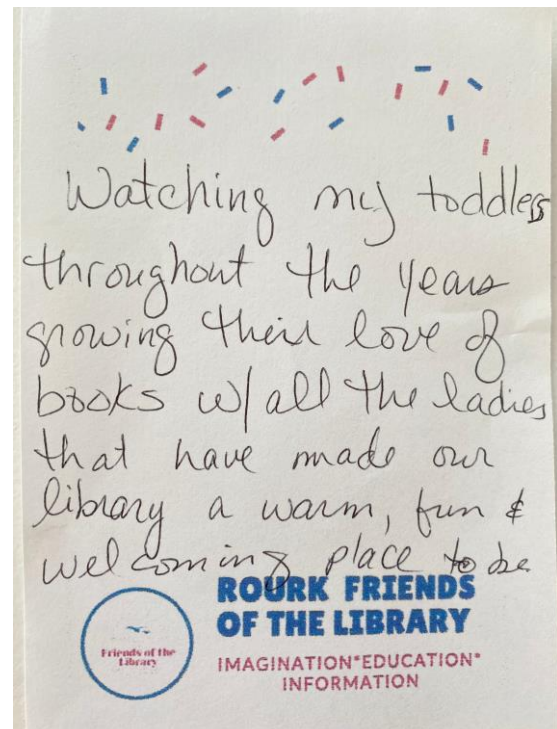 Watching my toddlers
throughout the years
growing their love of
books w/ all the ladies
that have made our
library a warm, fun &
welcoming place to be
ROURK FRIENDS
OF THE LIBRARY
Friends of the
Library
IMAGINATION*EDUCATION*
INFORMATION